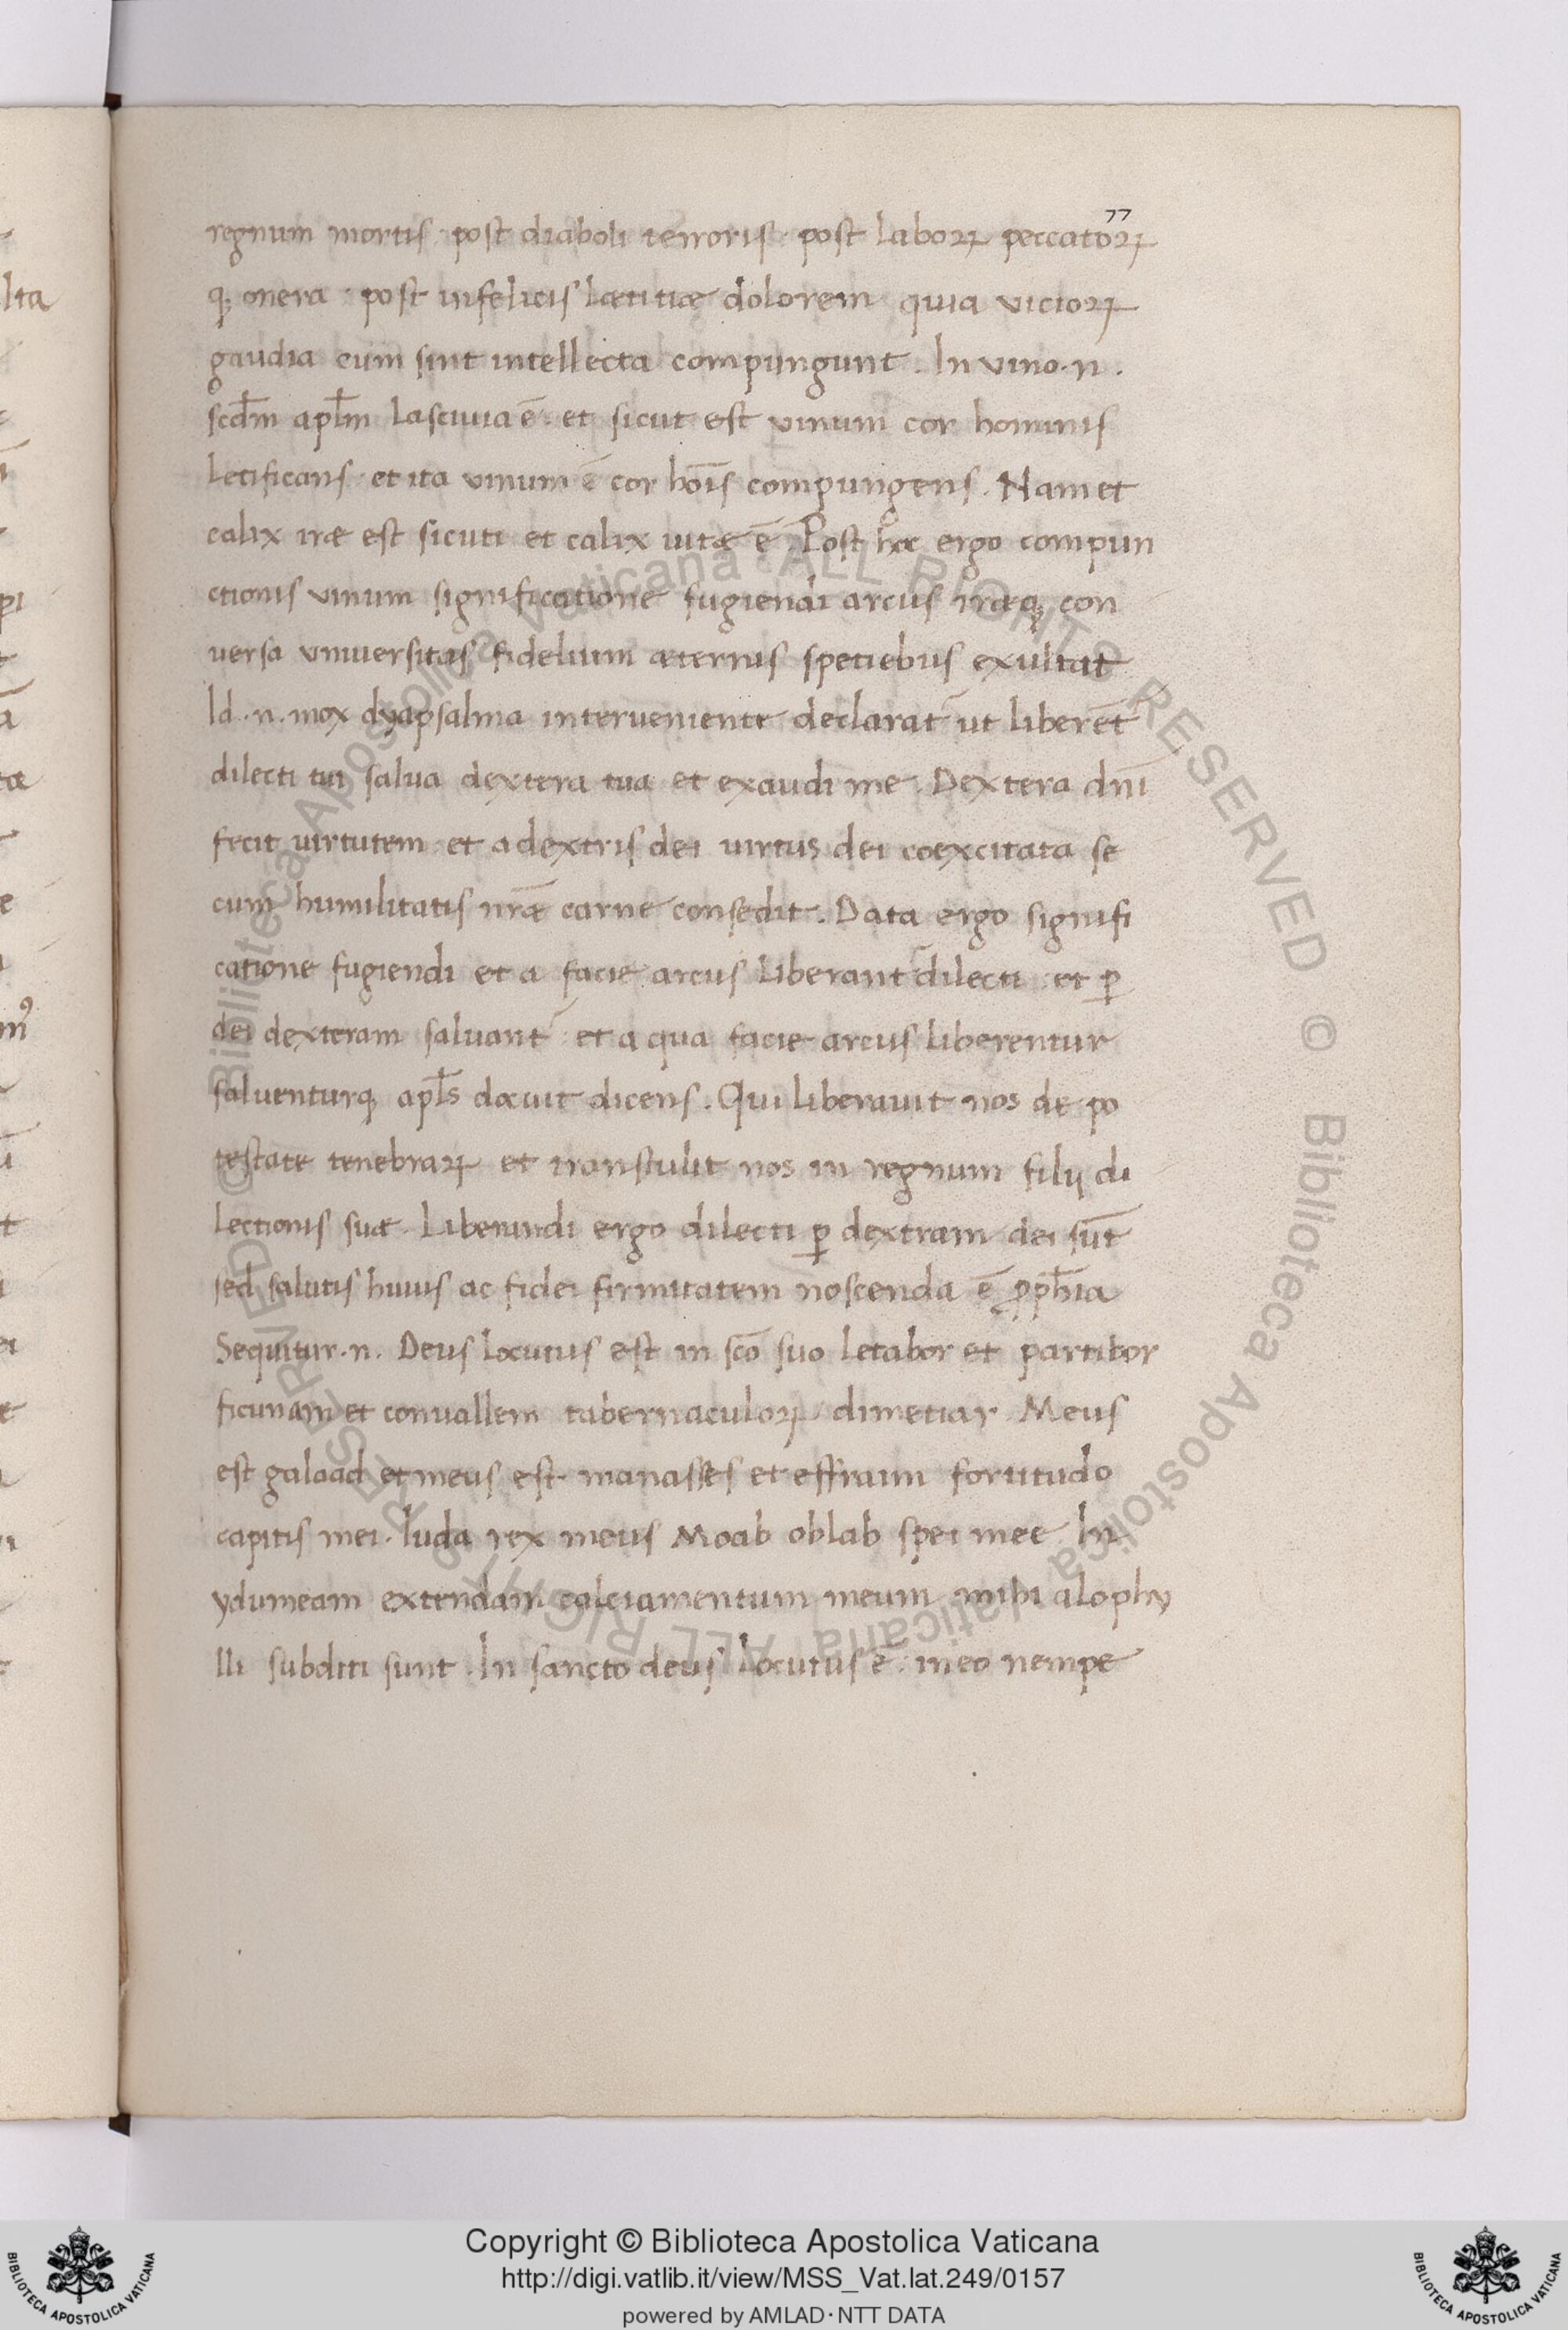 77
regnum mortis · post diaboli terroris · post laboꝝ peccatoꝝ
qꝫ onera · post infelicis lætitiæ dolorem quia vicioꝝ
gaudia cum sint intellecta compungunt . In vino · n .
scd̄m apl̄m lasciuia ē · et sicut est vinum cor hominis
letificans · et ita vinum ē cor hoīs compungens . Nam et
calix iræ est sicuti et calix uitæ ē . Post hoc ergo compun
ctionis vinum significatione fugiendi arcus iræqꝫ con
uersa vniuersitas fidelium æternis spetiebus exultat
Id · n · mox dyapsalma interueniente declarat̄ ut liberēt
dilecti tui salua dextera tua et exaudi me . Dextera dn̄i
fecit uirtutem · et a dextris dei uirtus dei coexcitata se
cum humilitatis nr̄æ carne consedit . Data ergo signifi
catione fugiendi et a facie arcus liberant̄ dilecti · et ꝑ
dei dexteram saluant̄ · et a qua facie arcus liberentur
saluenturqꝫ apl̄s docuit dicens . Qui liberauit nos de po
testate tenebraꝝ et transtulit nos in regnum filij di
lectionis suæ . Liberandi ergo dilecti ꝑ dextram dei sūt
sed salutis huius ac fidei firmitatem noscenda ē ꝓph̄ia
Sequitur · n . Deus locutus est in sc̄o suo letabor et partibor
ficunam et conuallem tabernaculoꝝ dimetiar Meus
est galaad et meus est manasses et effraim fortitudo
capitis mei · Iuda rex meus Moab oblab spei mee In
ydumeam extendam calciamentum meum mihi alophy
lli subditi sunt . In sancto deus locutus ē · in eo nempe
lta
Copyright © Biblioteca Apostolica Vaticana
http://digi.vatlib.it/view/MSS_Vat.lat.249/0157
powered by AMLAD·NTT DATA
BIBLIOTECA APOSTOLICA VATICANA
BIBLIOTECA APOSTOLICA VATICANA
© Biblioteca Apostolica Vaticana ALL RIGHTS RESERVED © Biblioteca Apostolica Vaticana ALL RIGHTS RESERVED